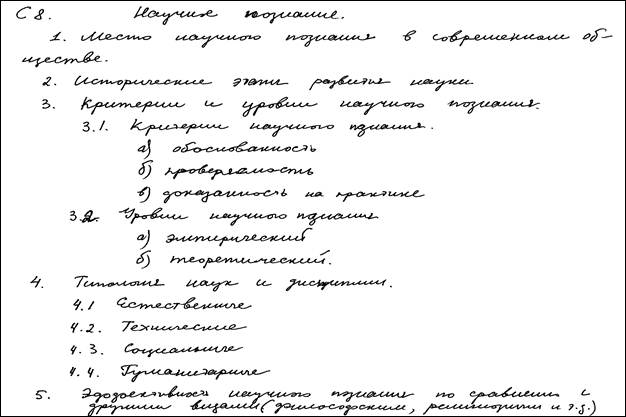 С 8. Научное познание.
1. Место научного познания в современном об-
ществе.
2. Исторические этапы развития науки
3. Критерии и уровни научного познания.
3.1. Критерии научного познания.
а) обоснованность
б) проверяемость
в) доказанность на практике
3.2. Уровни научного познания
а) эмпирический
б) теоретический.
4. Типология наук и дисциплин.
4.1 Естественные
4.2. Технические
4.3. Социальные
4.4. Гуманитарные
5. научного познания по сравнению с
другими видами (философским, религиозным и т.д.)